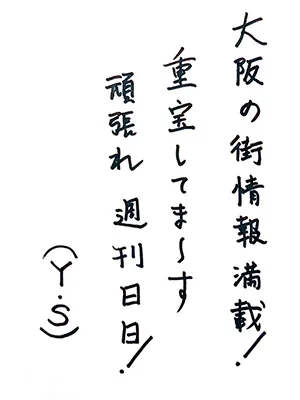 大阪の街情報満載！
重宝してま〜す
頑張れ 週刊日日！
（Y・S）